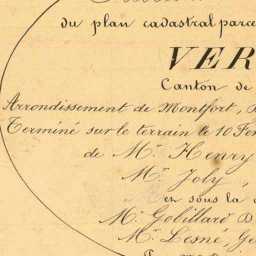 du plan cadastral parce
VER
Canton de
Arrondissement de Montfort,
Terminé sur le terrain le 10
de Mr. Henry
Mr. Joly,
en sous la
Mr. Gobillard D
Mr. Lesné, Gé